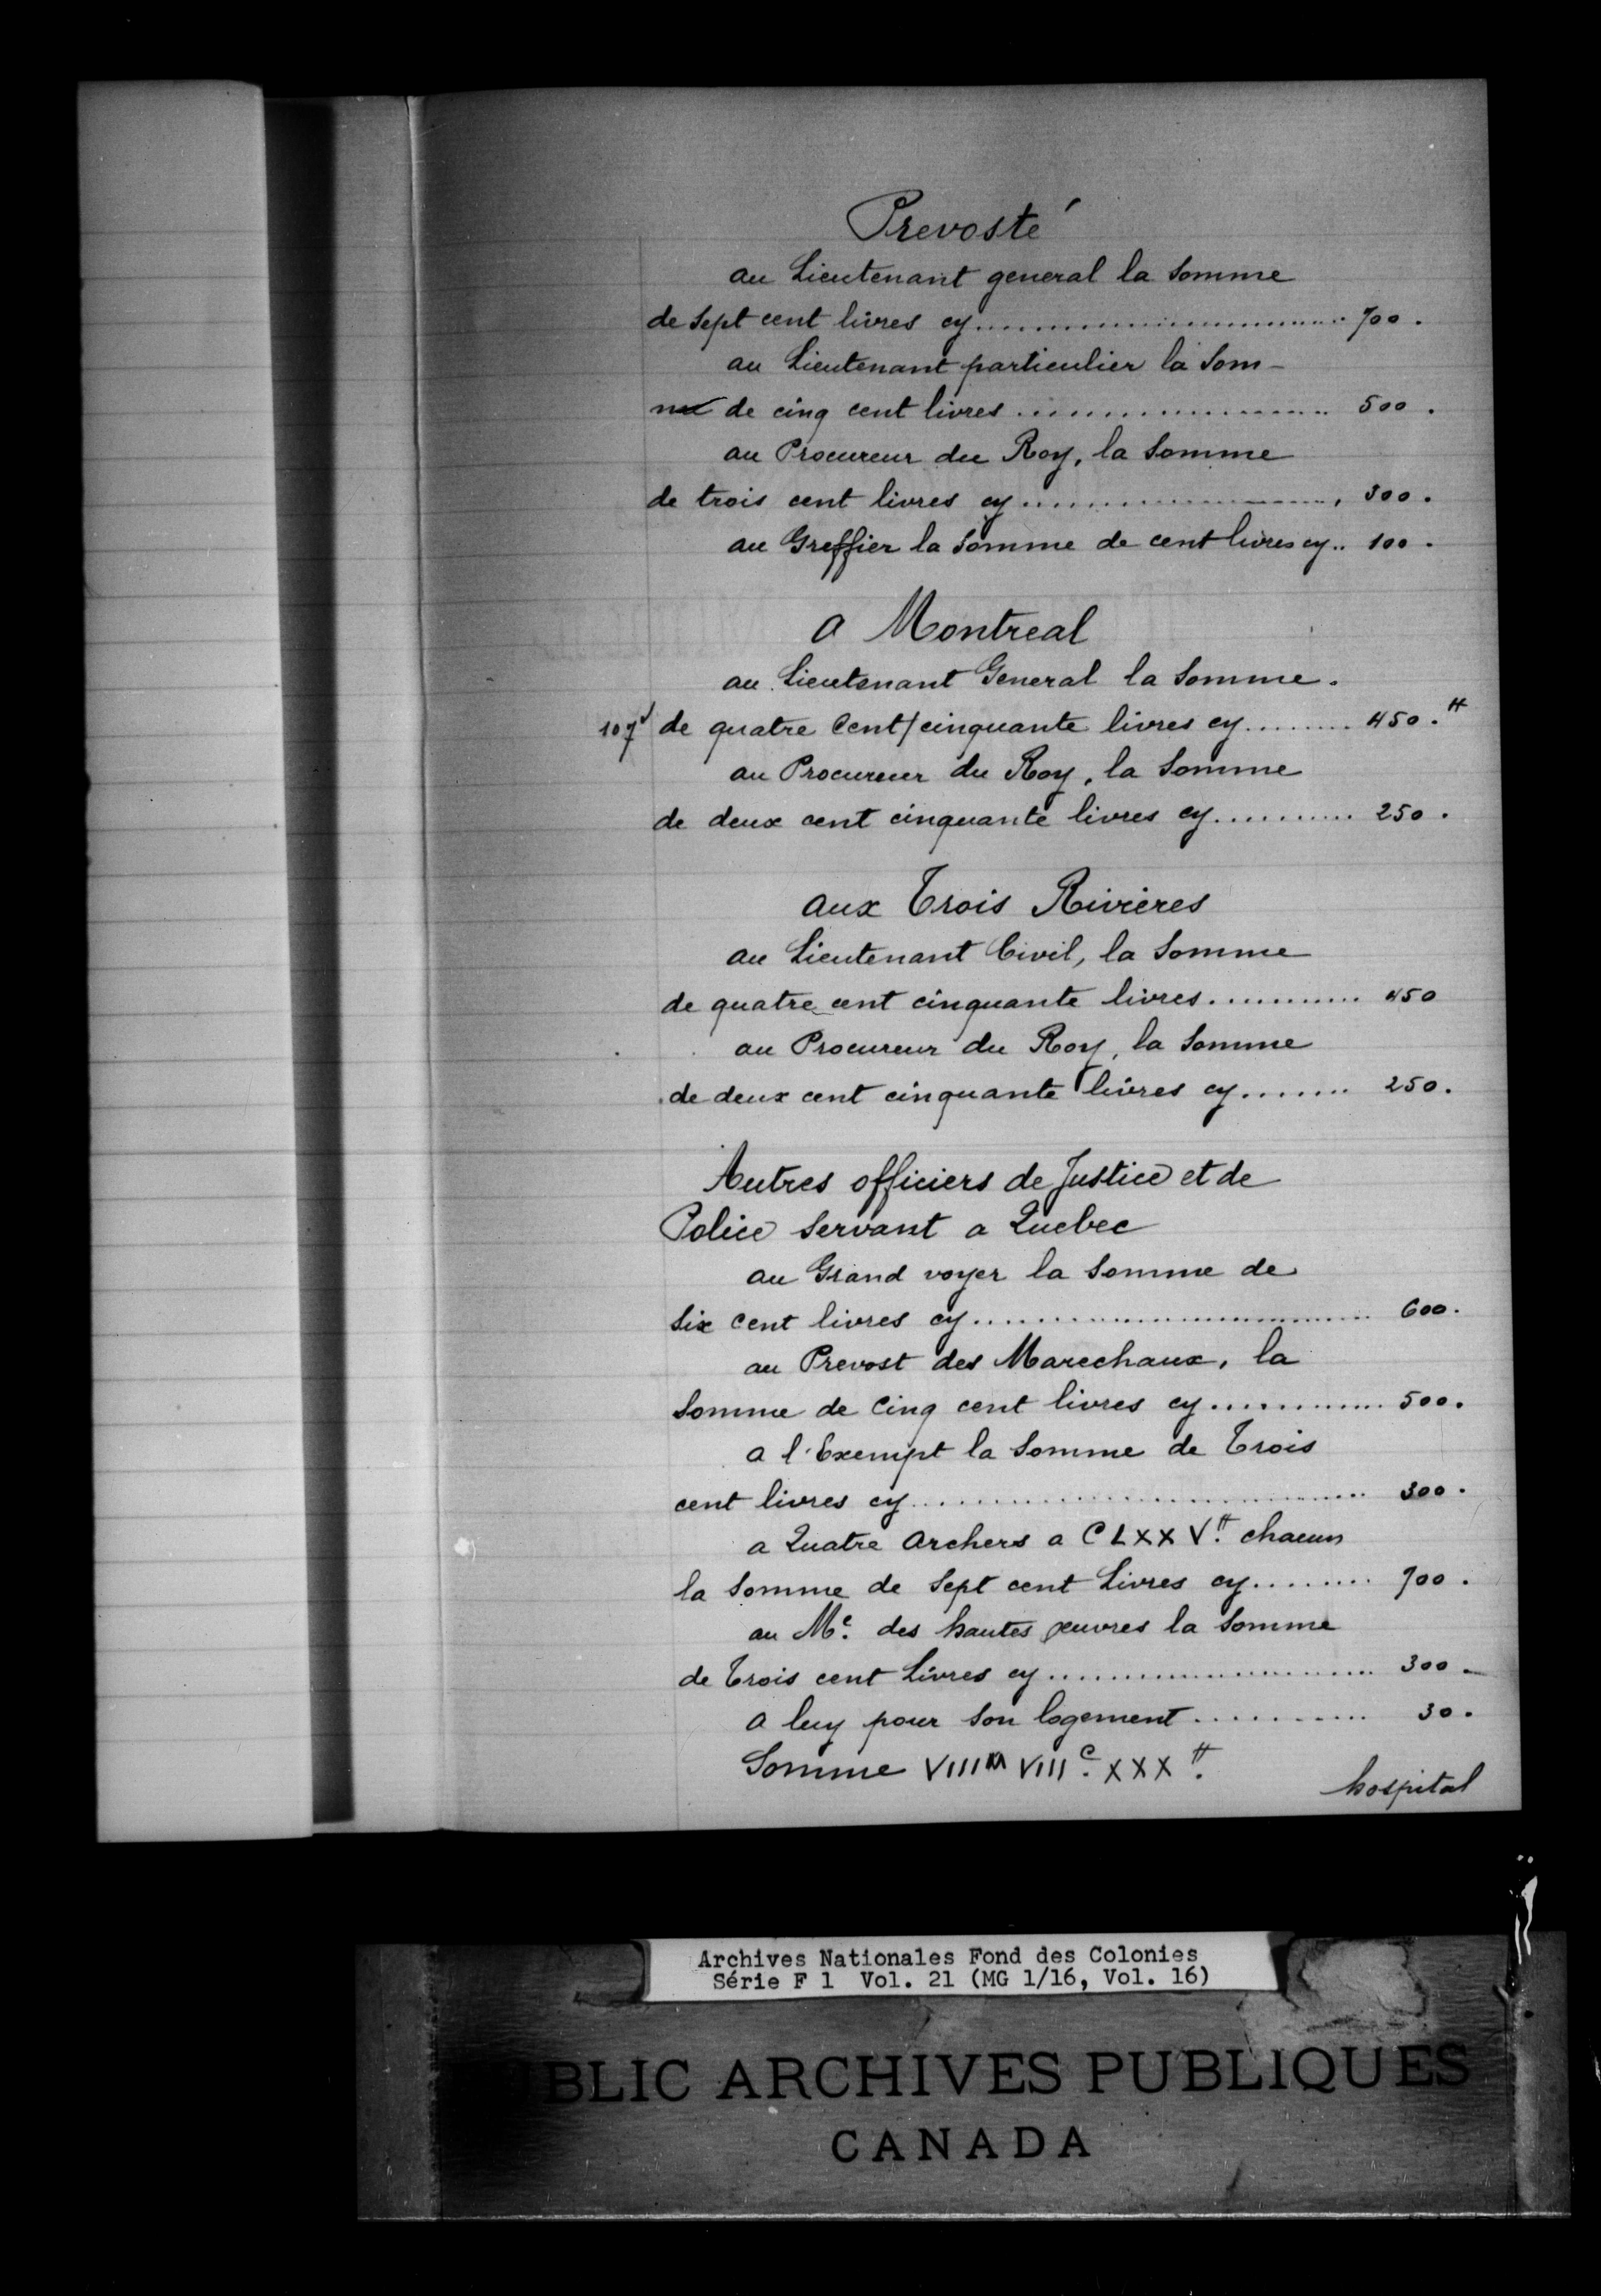 Prevosté
au Lieutenant general la somme
de sept cent livres cy.............................. 700.
au Lieutenant particulier la som-
me de cinq cent livres ........................ 500.
au Procureur du Roy, la somme
de trois cent livres cy........................ 300.
au Greffier la somme de cent livres cy.. 100.
A Montreal
au Lieutenant General la somme.
107v de quatre cent/cinquante livres cy......... 450.#
au Procureur du Roy, la somme
de deux cent cinquante livres cy........... 250.
aux Trois Rivières
au Lieutenant Civil, la somme
de quatre cent cinquante livres............ 450
au Procureur du Roy, la somme
de deux cent cinquante livres cy........ 250.
Autres officiers de Justice et de
Police servant a Quebec
au Grand voyer la somme de
six cent livres cy.............................. 600.
au Prevost des Marechaux, la
somme de Cinq cent livres cy............. 500.
a l'Exempt la somme de Trois
cent livres cy................................ 300.
a Quatre Archers a CLXXV.# chacun
la somme de Sept cent Livres cy......... 700.
au Me. des hautes œuvres la somme
de Trois cent Livres cy........................ 300.
A luy pour son logement............. 30.
Somme VIIIm VIIIc. XXX#.
hospital
Archives Nationales Fond des Colonies
Série F 1 Vol. 21 (MG 1/16, Vol. 16)
BLIC ARCHIVES PUBLIQUES
CANADA